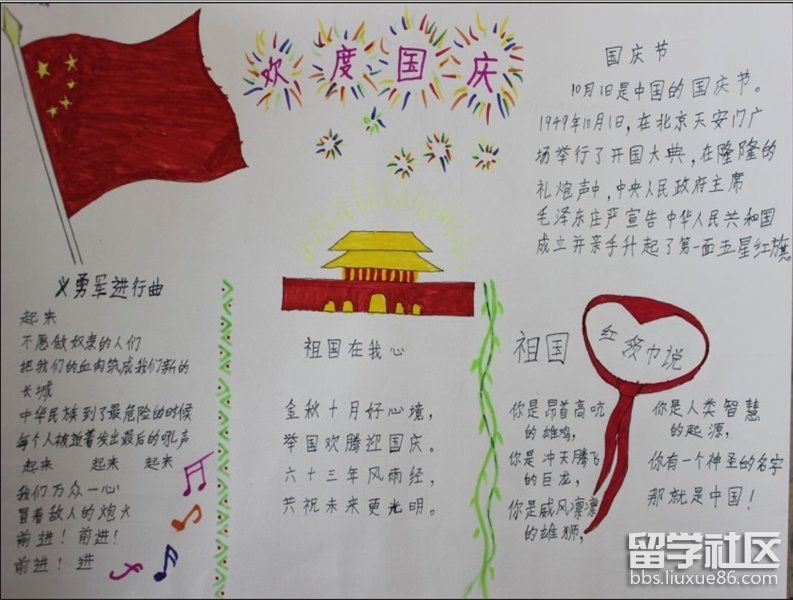 欢度国庆
国庆节
10月1日是中国的国庆节。
1949年10月1日,在北京天安门广
场举行了开国大典,在隆隆的
礼炮声中,中央人民政府主席
毛泽东庄严宣告中华人民共和国
成立并亲手升起了第一面五星红旗。
义勇军进行曲
起来
不愿做奴隶的人们
把我们的血肉筑成我们新的
长城
中华民族到了最危险的时候
每个人被迫着发出最后的吼声
起来 起来 起来
我们万众一心
冒着敌人的炮火
前进!前进!
前进!进
祖国在我心
金秋十月好心境,
举国欢腾迎国庆。
六十三年风雨经,
共祝未来更光明。
祖国
红领巾说
你是昂首高吭
的雄鸡,
你是冲天腾飞
的巨龙,
你是威风凛凛
的雄狮,
你是人类智慧
的起源,
你有一个神圣的名字
那就是中国!
留学社区
bbs.liuxue86.com